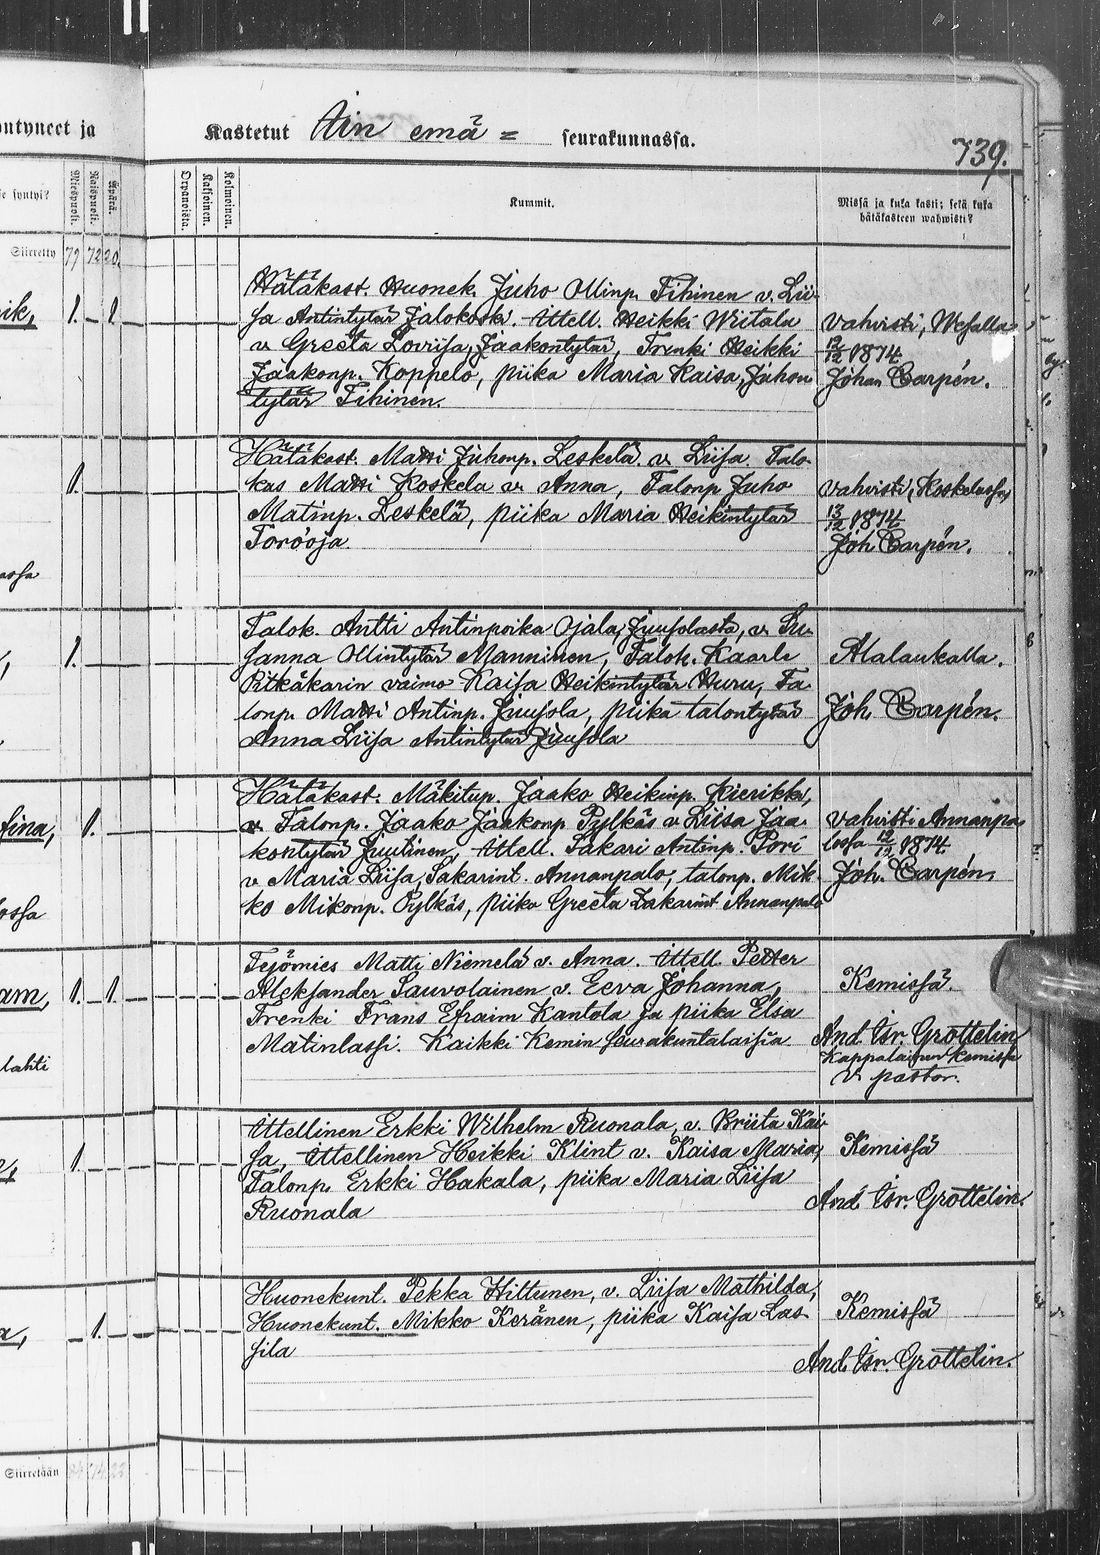 ntyneet ja
Kastetut Iin emä = seurakunnassa.
739.
se syntyi?
Miespuoli.
Naispuoli.
Äpärä.
Orpanoista.
Kaksoinen.
Kolmoinen.
Kummit.
Missä ja kuka kasti; sekä kuka
hätäkasteen wahwisti?
Siirretty 79 72 20.
Hätäkast. Huonek. Juho Ollinp. Tihinen v. Lii-
sa Antintytär Jalokoski. Itell. Heikki Wiitala
v. Greeta Loviisa Jaakontytär, Trenki Heikki
Jaakonp. Koppelo, piika Maria Kaisa Juhon
tytär Tihinen.
vahvisti, Wesalla
12/12 1874
Johan Carpén.
ik, 1. 1.
Hätäkast. Matti Juhonp. Leskelä v. Liisa, Talo-
kas Matti Koskela v. Anna, Talonp Juho
Matinp. Leskelä, piika Maria Heikintytär
Torooja.
vahvisti, Koskelassa,
13/12 1874
Joh Carpén.
1.
assa
Talok. Antti Antinpoika Ojala, Juusolasta, v. Su-
sanna Ollintytär Manninen, Talok. Kaarle
Pitkäkarin vaimo Kaisa Heikintytär Huru, Ta-
lonp. Matti Antinp. Juusola, piika talontytär
Anna Liisa Antintytär Juusola
Alaleukalla.
Joh. Carpén.
1.
Hätäkast. Mäkitup. Jaako Heikinp. Kierikki,
v. Talonp. Jaako Jaakonp Pylkäs v Liisa Jaa-
kontytär Juutinen, Itell. Sakari Antinp. Pori
v Maria Liisa, Sakarint. Annanpalo, talonp. Mik-
ko Mikonp. Pylkäs, piika Greeta Zakarint Annanpalo
vahvisti Annanpa-
lossa 12/12 1874
Joh. Carpén.
fina, 1.
ossa
Tejömies Matti Niemelä v. Anna. Itell. Petter
Aleksander Sauvolainen v. Eeva Johanna,
Trenki Frans Efraim Kantola ja piika Elsa
Matinlassi. Kaikki Kemin seurakuntalaisia
Kemissä
And. Isr. Grottelin
Kappalainen Kemissä
v. pastor.
am, 1. 1.
lahti
Itellinen Erkki Wilhelm Ruonala, v. Briita Kai-
sa, Itellinen Heikki Klint v. Kaisa Maria,
Talonp. Erkki Hakala, piika Maria Liisa
Ruonala
Kemissä
And. Isr. Grottelin.
1.
Huonekunt. Pekka Hiltunen, v. Liisa Mathilda,
Huonekunt. Mikko Keränen, piika Kaisa Las-
sila
Kemissä
And. Isr. Grottelin.
a, 1.
Siirretään 84 74 22